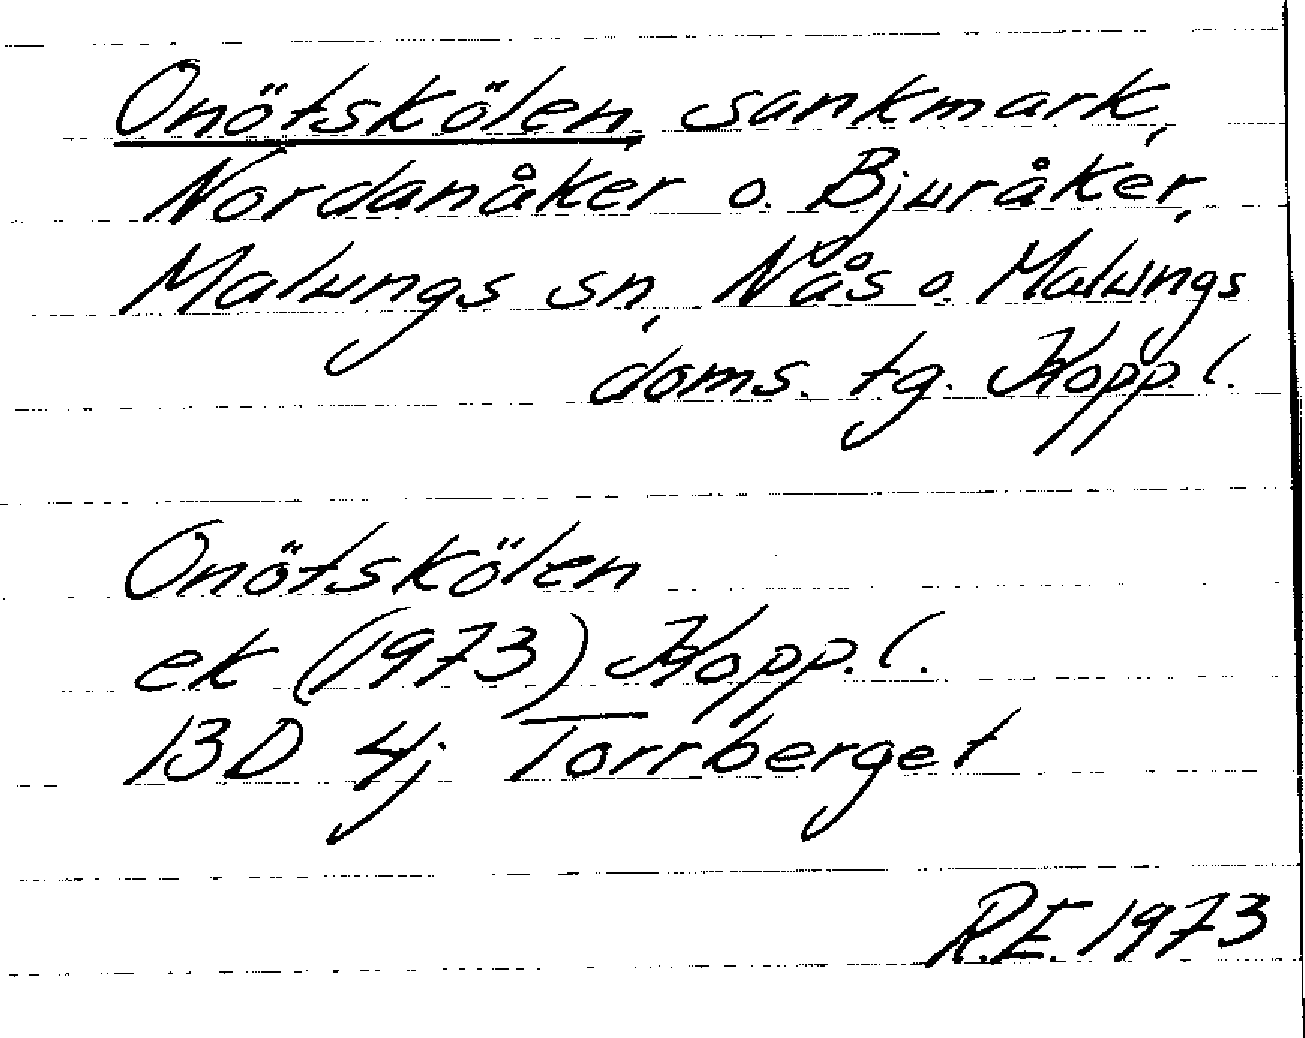 Onötskölen, sankmark,
Nordanåker o. Bjuråker,
Malungs sn, Nås o. Malungs
doms. tg. Kopp. l.
Onötskölen
ek (1973) Kopp. l.
13D 4j Torrberget
R.E. 1973